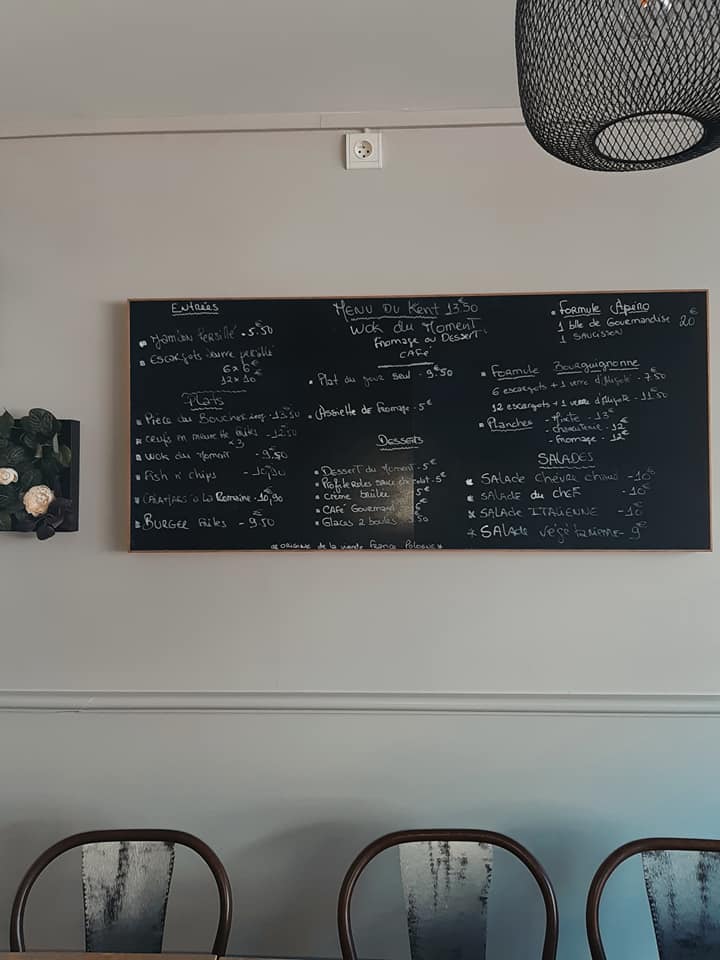 Entrées
Jambon Persillé - 5.50
Escargots beurre persillé
6 x 6€
12 x 10€
Plats
Pièce du Boucher 200g - 13.50
oeufs en meurette frites - 12.50
x3
Wok du Moment - 9.50
Fish n' chips - 10.90
à la Romaine - 10.90
BURGER frites - 9.50
MENU DU Kent 13€50
Wok du Moment
fromage ou DESSERT
CAFé
Plat du jour seul - 9€50
Assiette de Fromage - 5€
DESSERTS
DESSERT du Moment - 5€
Profiteroles sauce chocolat - 5€
Crème brulée 5€
CAFé Gourmand 6€
Glaces 2 boules 50
Formule Apéro
1 blle de Gourmandise 20€
1 SAUCISSON
Formule Bourguignonne
6 escargots + 1 verre d'Aligoté - 7€50
12 escargots + 1 verre d'Aligoté - 11€50
Planches - Mixte - 13€
- charcuterie - 12€
- fromage - 12€
SALADES
SALADE Chèvre chaud - 10€
SALADE du chef - 10€
SALADE ITALIENNE - 10€
SALAde végétarienne - 9€
*ORIGINE de la viande France - Pologne*